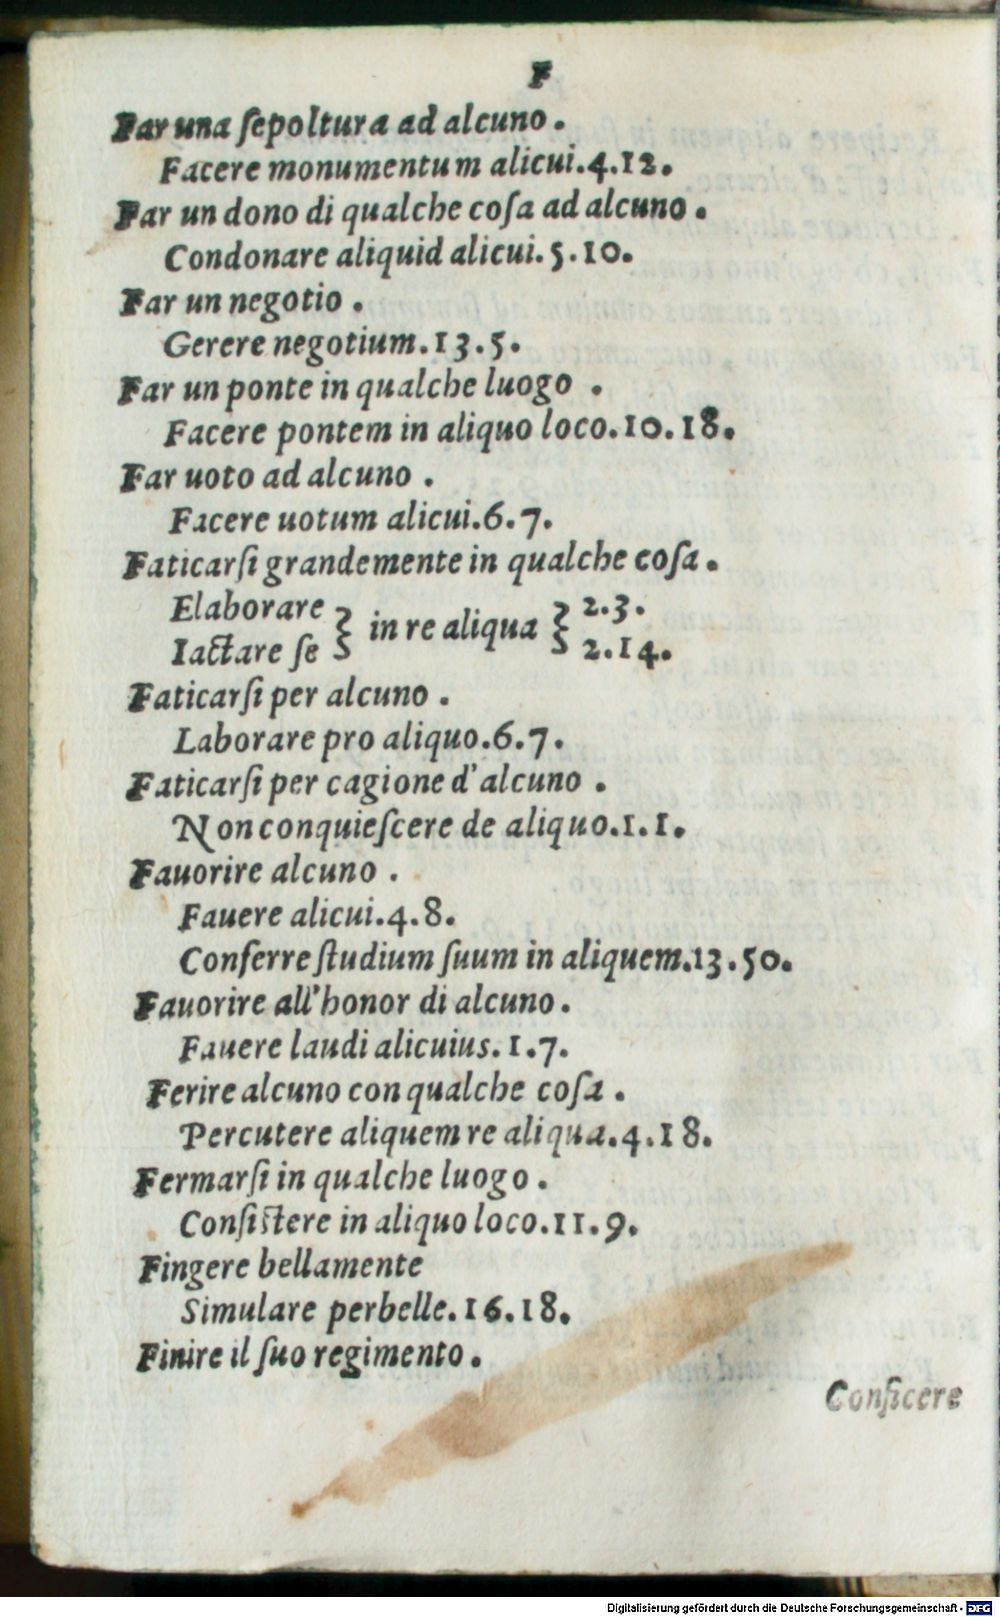 F
Far una ſepoltura ad alcuno.
Facere monumentum alicui.4.12.
Far un dono di qualche coſa ad alcuno.
Condonare aliquid alicui.5.10.
Far un negotio.
Gerere negotium.13.5.
Far un ponte in qualche luogo.
Facere pontem in aliquo loco.10.18.
Far uoto ad alcuno.
Facere uotum alicui.6.7.
Faticarſi grandemente in qualche coſa.
Elaborare } in re aliqua } 2.3.
Iactare ſe } 2.14.
Faticarſi per alcuno.
Laborare pro aliquo.6.7.
Faticarſi per cagione d'alcuno.
Non conquieſcere de aliquo.1.1.
Fauorire alcuno.
Fauere alicui.4.8.
Conferre ſtudium ſuum in aliquem.13.50.
Fauorire all'honor di alcuno.
Fauere laudi alicuius.1.7.
Ferire alcuno con qualche coſa.
Percutere aliquem re aliqua.4.18.
Fermarſi in qualche luogo.
Conſiſtere in aliquo loco.11.9.
Fingere bellamente
Simulare perbelle.16.18.
Finire il ſuo regimento.
Conficere
Digitalisierung gefördert durch die Deutsche Forschungsgemeinschaft - DFG